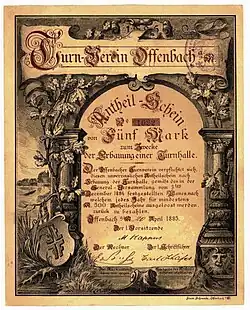 Turn-Verein Offenbach a/M
Antheil-Schein
No
von Fünf Mark
zum Zwecke
der Erbauung einer Turnhalle.
Der Offenbacher Turnverein verpflichtet sich
diesen unverzinslichen Antheilschein nach
Erbauung der Turnhalle, gemäß des in der
General-Versammlung vom
December 1884 festgestellten Planes, nach
welchem jedes Jahr für mindestens
M. 500 Antheilscheine ausgeloost werden
zurück zu bezahlen.
Offenbach a/M. April 1885.
Der I. Vorsitzende
Der Rechner Der I. Schriftführer